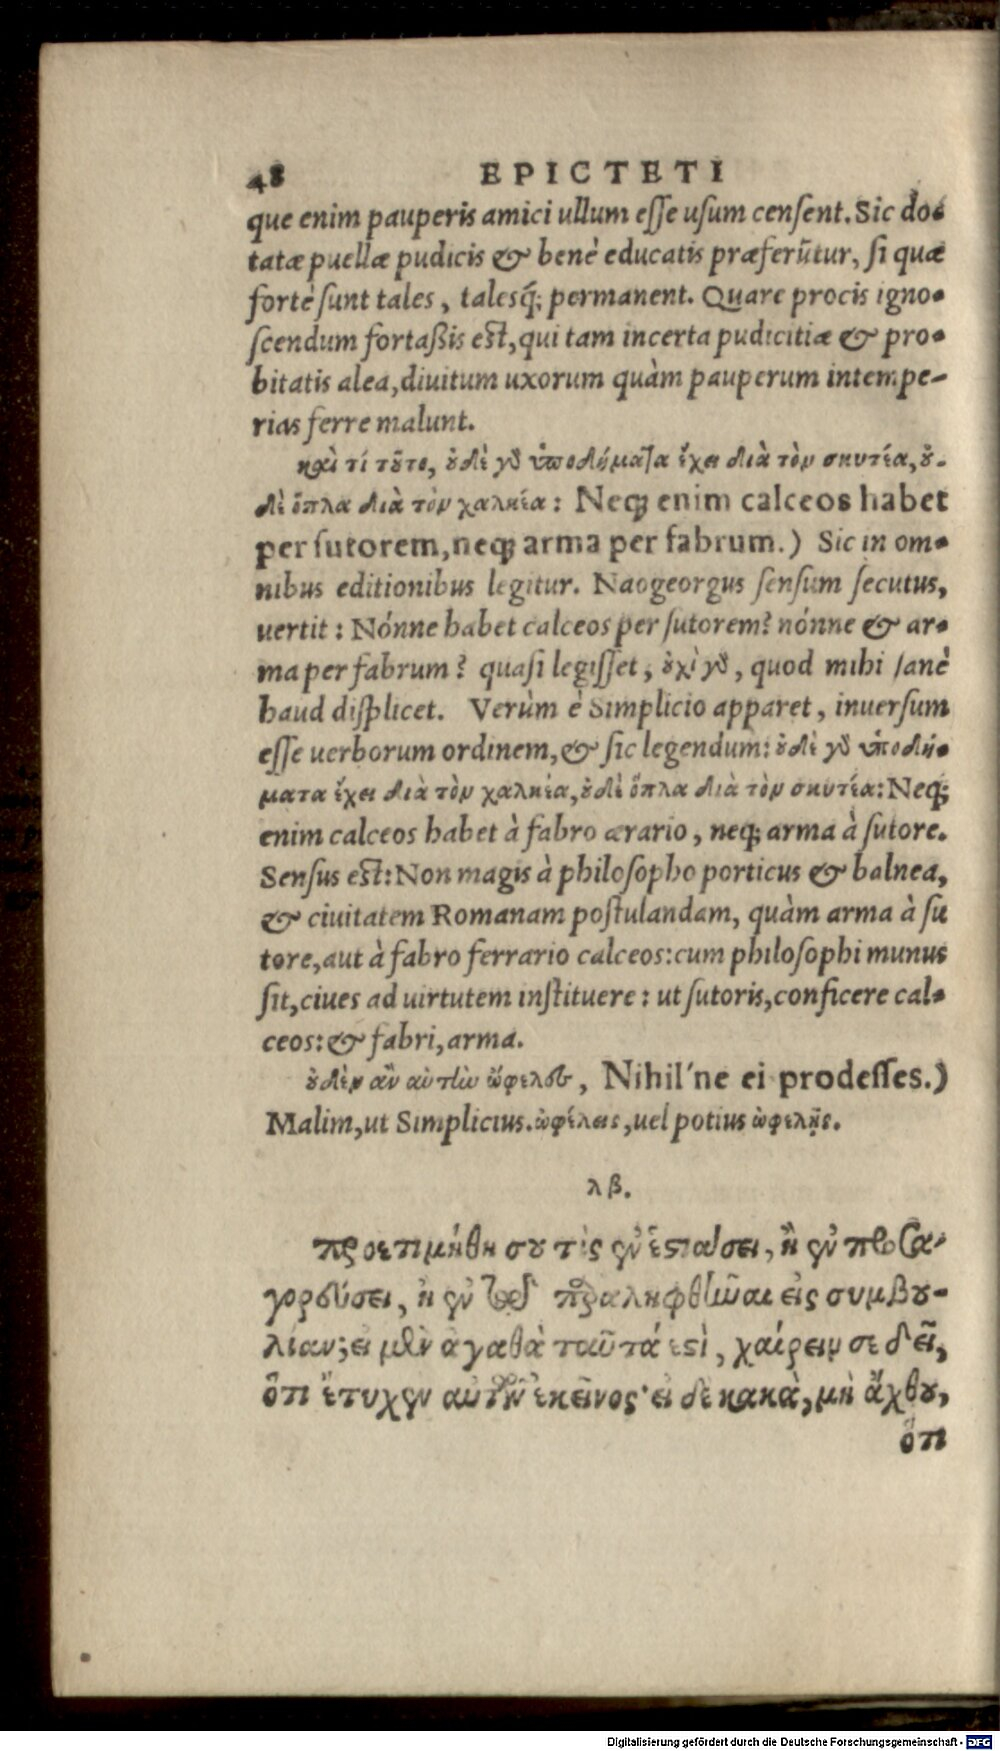 48 EPICTETI
que enim pauperis amici ullum esse usum censent. Sic do-
tatæ puellæ pudicis & benè educatis præferũtur, si quæ
fortè sunt tales, talesq́; permanent. Quare procis igno-
scendum fortaßis est, qui tam incerta pudicitiæ & pro-
bitatis alea, diuitum uxorum quàm pauperum intempe-
rias ferre malunt.
καὶ τί τοῦτο, οὐδὲ γὰρ ὑποδήματα ἔχει διὰ τὸν σκυτέα, οὐ-
δὲ ὅπλα διὰ τὸν χαλκέα: Neq; enim calceos habet
per sutorem, neq; arma per fabrum.) Sic in om-
nibus editionibus legitur. Naogeorgus sensum secutus,
uertit: Nónne habet calceos per sutorem? nónne & ar-
ma per fabrum? quasi legisset, οὐχὶ γὰρ, quod mihi sanè
haud displicet. Verùm è Simplicio apparet, inuersum
esse uerborum ordinem, & sic legendum: οὐδὲ γὰρ ὑποδή-
ματα ἔχει διὰ τὸν χαλκέα, οὐδὲ ὅπλα διὰ τὸν σκυτέα: Neq;
enim calceos habet à fabro ærario, neq; arma à sutore.
Sensus est: Non magis à philosopho porticus & balnea,
& ciuitatem Romanam postulandam, quàm arma à su
tore, aut à fabro ferrario calceos: cum philosophi munus
sit, ciues ad uirtutem instituere: ut sutoris, conficere cal-
ceos: & fabri, arma.
οὐδὲν ἂν αὐτὴν ὠφελοῦ, Nihil'ne ei prodesses.)
Malim, ut Simplicius. ὠφέλεις, uel potius ὠφελῇς.
λβ.
προετιμήθη σου τὶς ἐν ἑστιάσει, ἢ ἐν προσα-
γορεύσει, ἢ ἐν τῷ παραληφθῆναι εἰς συμβου-
λίαν; εἰ μὲν ἀγαθὰ ταῦτά ἐστὶ, χαίρειν σε δεῖ,
ὅτι ἔτυχεν αὐτῶν ἐκεῖνος· εἰ δὲ κακὰ, μὴ ἄχθου,
ὅτι
Digitalisierung gefördert durch die Deutsche Forschungsgemeinschaft - DFG